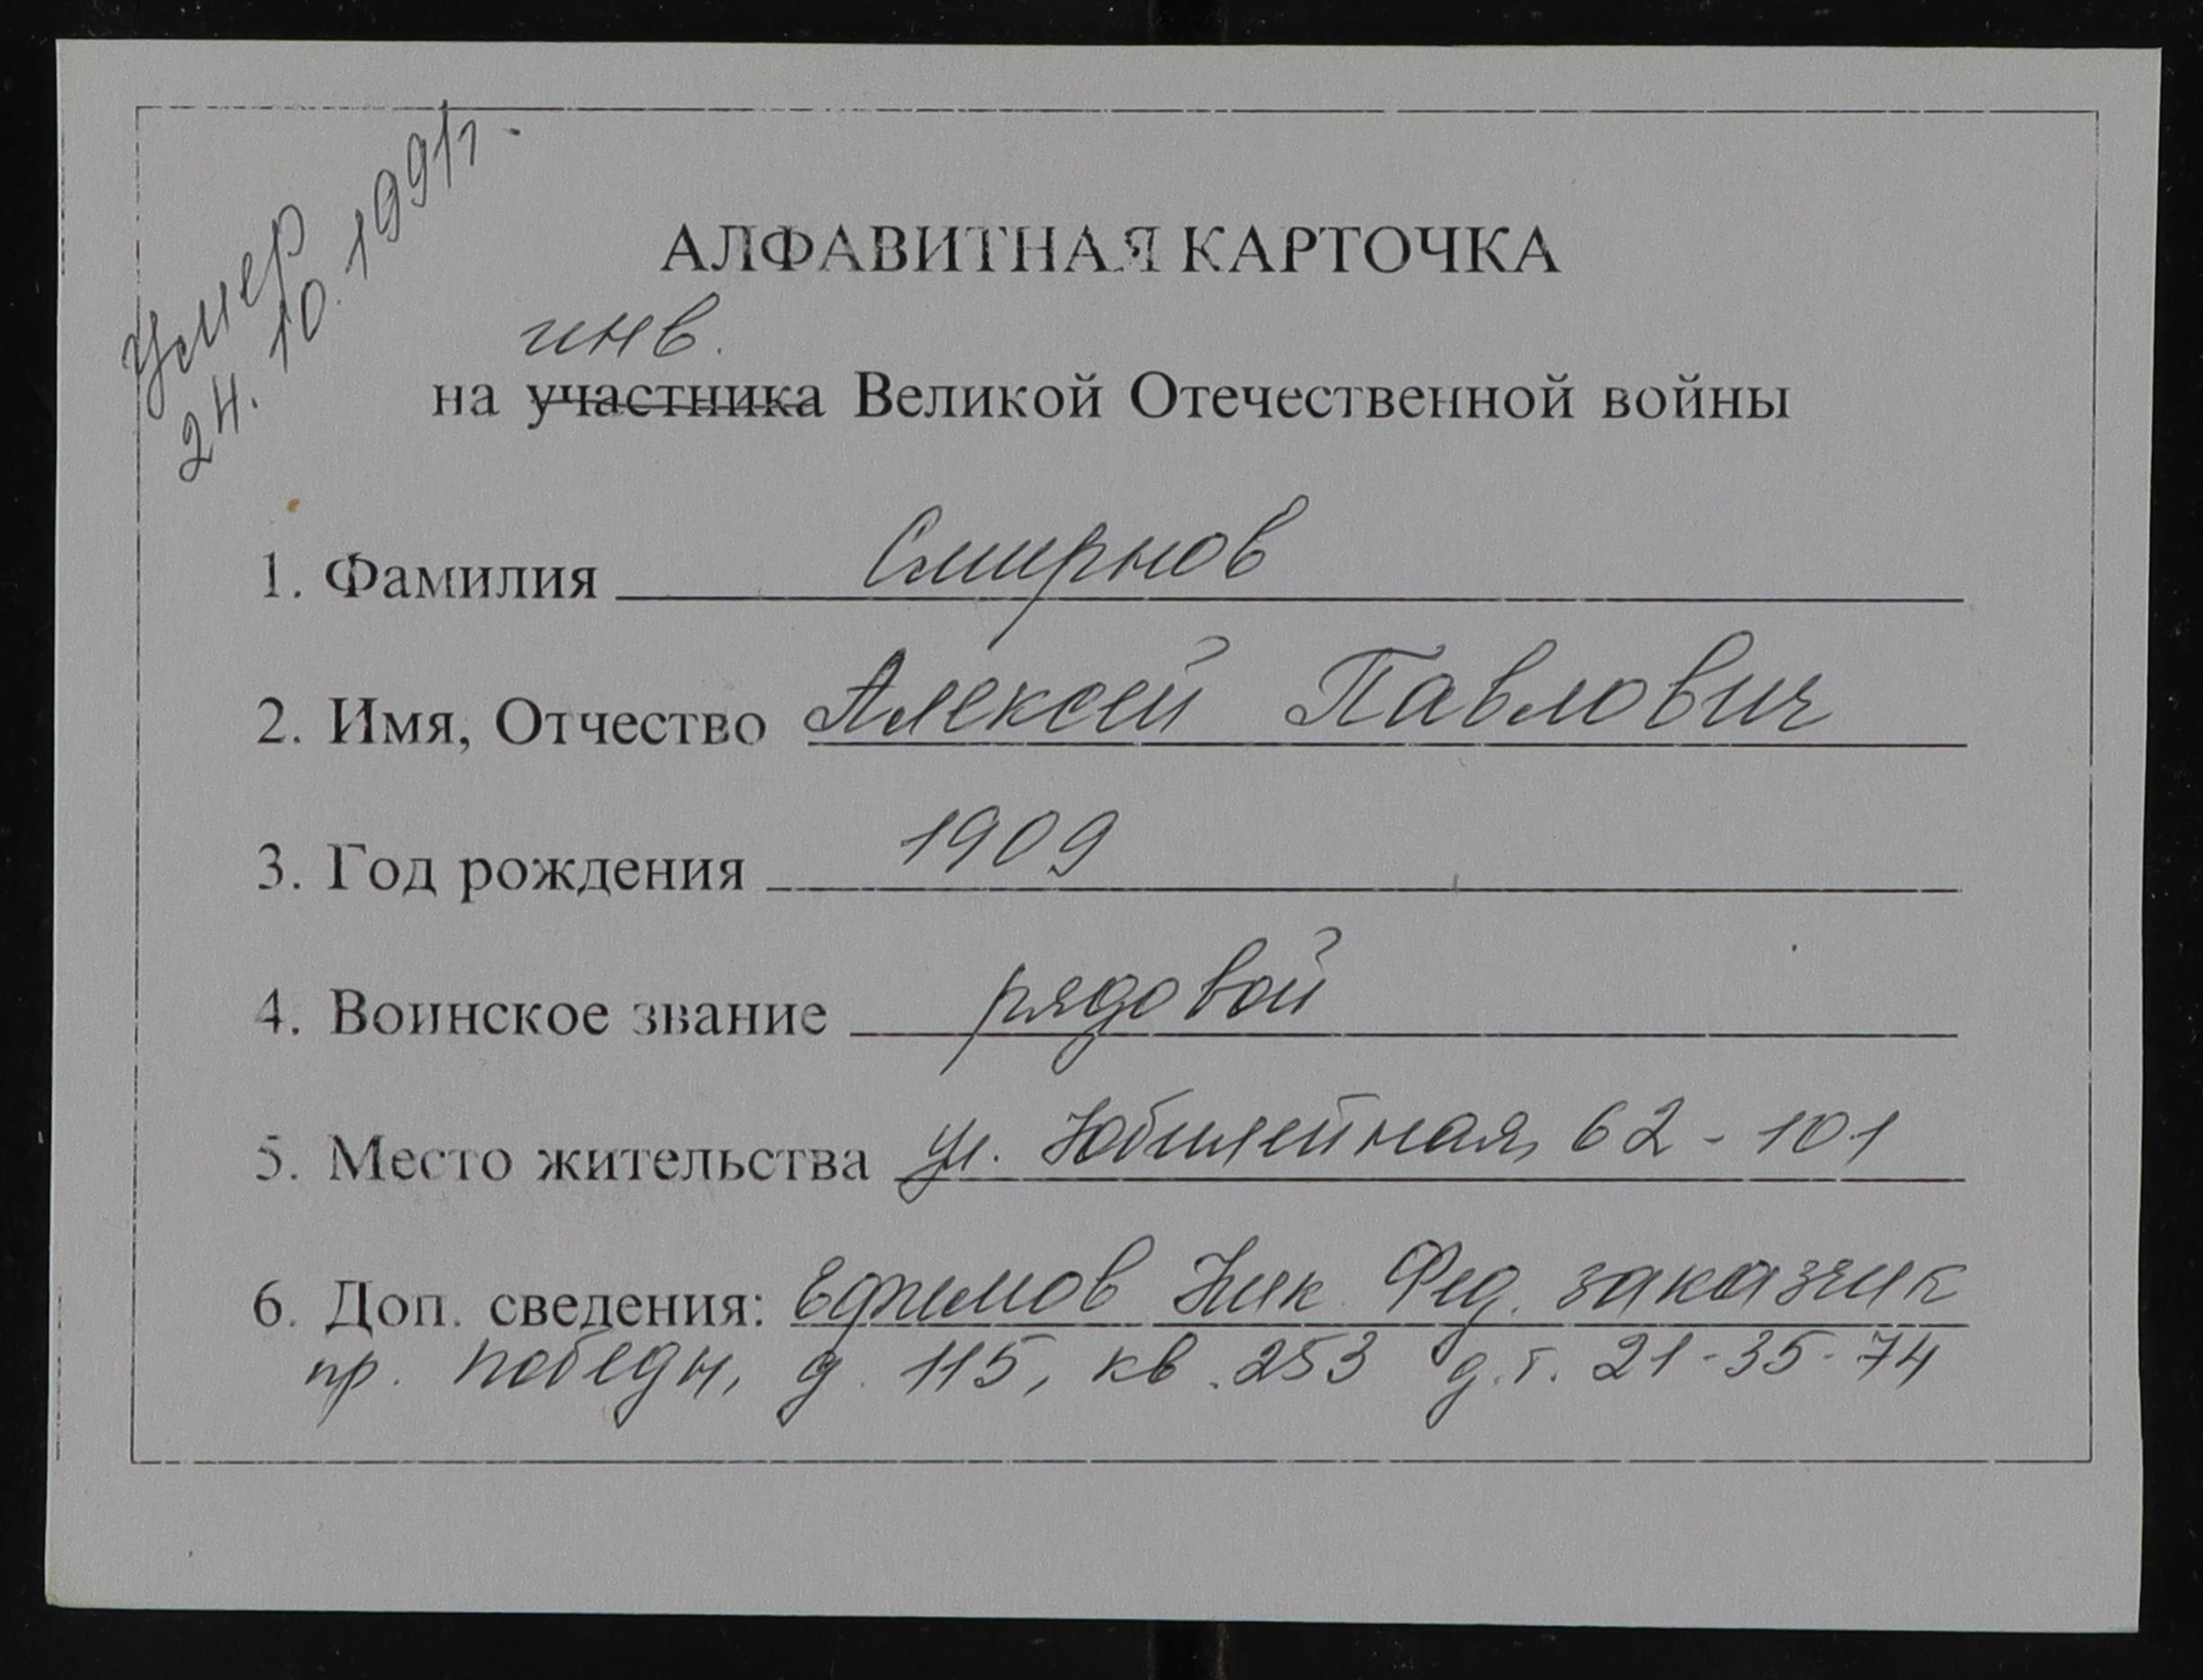 Умер
24. 10. 1991г.
АЛФАВИТНАЯ КАРТОЧКА
инв.
на участника Великой Отечественной войны
1. Фамилия Смирнов
2. Имя, Отчество Алексей Павлович
3. Год рождения 1909
4. Воинское звание рядовой
5. Место жительства ул. Юбилейная, 62 - 101
6. Доп. сведения: Ефимов Ник. Фед. заказчик
пр. Победы, д. 115, кв. 253 д.т. 21-35-74